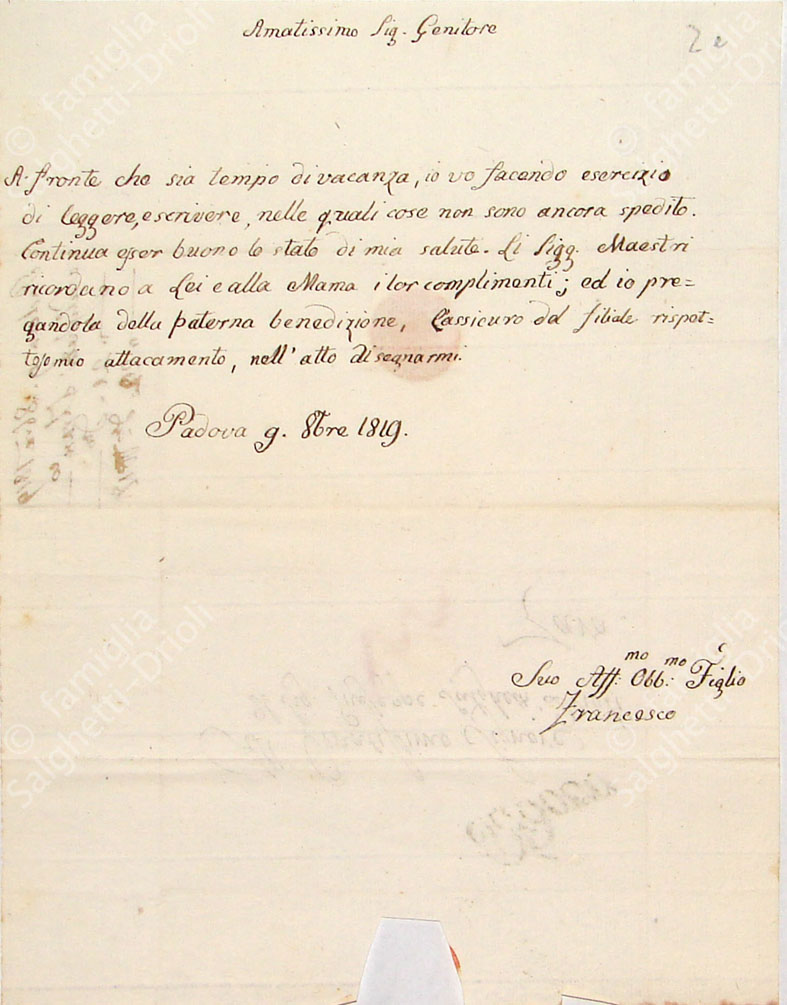 Amatissimo Sig. Genitore
2
A fronte che sia tempo di vacanza, io vo facendo esercizio
di leggere, e scrivere, nelle quali cose non sono ancora spedito.
Continua esser buono lo stato di mia salute. Li Sigg. Maestri
ricordano a Lei e alla Mama i lor complimenti; ed io pre=
gandola della paterna benedizione, l'assicuro del filiale rispet=
toso mio attacamento, nell'atto di segnarmi.
Padova 9. 8bre 1819.
Suo Aff:mo Obb:mo Figlio
Francesco
© famiglia
Salghetti-Drioli
© famiglia
Salghetti-Drioli
© famiglia
Salghetti-Drioli
© famiglia
Salghetti-Drioli